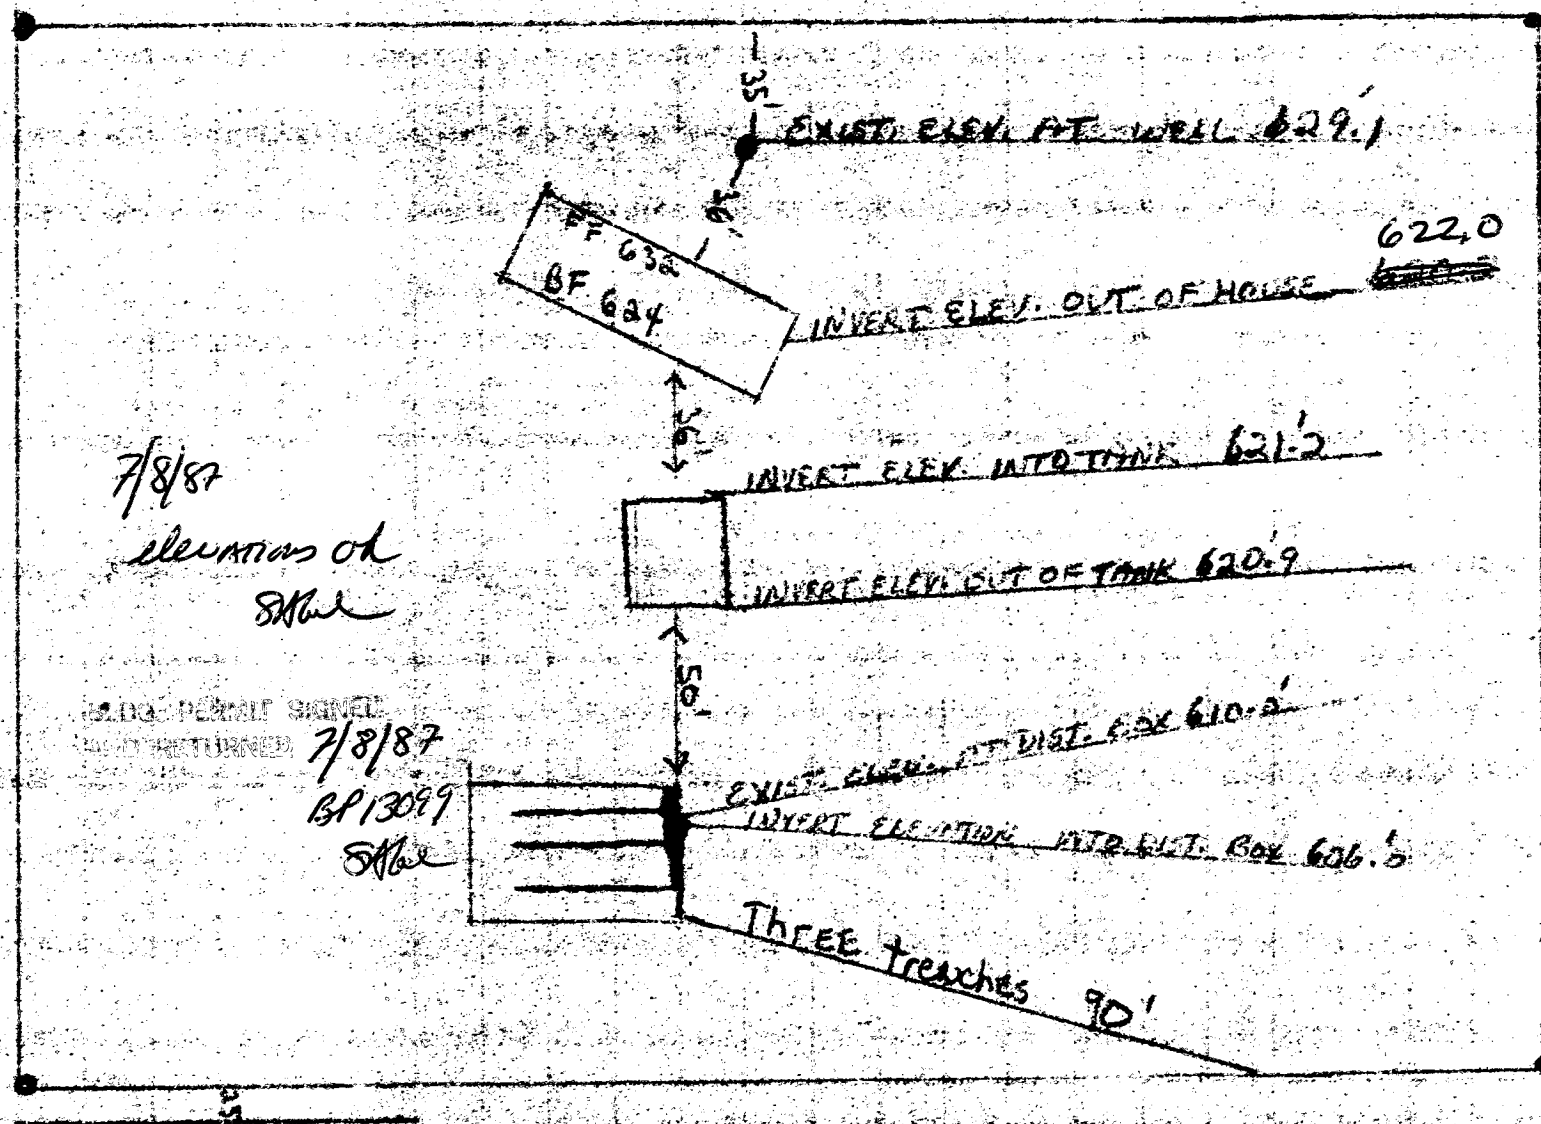 35'
EXIST. ELEV. AT WELL 629.'1
36'
FF 632
BF 624
622.0
INVERT ELEV. OUT OF HOUSE
36'
INVERT ELEV. INTO TANK 621.'2
7/8/87
elevations ok
INVERT ELEV. OUT OF TANK 620.'9
50'
BLDG. PERMIT SIGNED
AND RETURNED 7/8/87
BP 13099
EXIST. ELEV. AT DIST. BOX 610.
INVERT ELEVATION INTO DIST. BOX 606.
Three trenches 90'
25